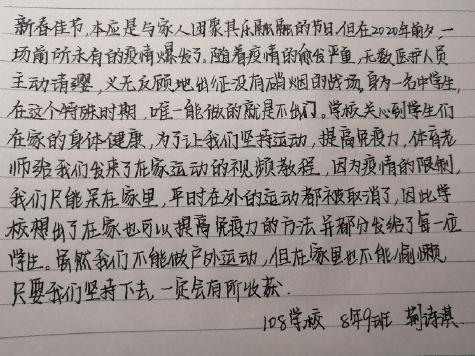 新春佳节,本应是与家人团聚其乐融融的节日,但在2020年前夕,一
场前所未有的疫情爆发了,随着疫情的愈发严重,无数医护人员
主动请缨,义无反顾地出征没有硝烟的战场,身为一名中学生,
在这个特殊时期,唯一能做的就是不出门。学校关心到学生们
在家的身体健康,为了让我们坚持运动,提高免疫力,体育老
师给我们发来了在家运动的视频教程,因为疫情的限制,
我们只能呆在家里,平时在外的运动都被取消了,因此学
校想出了在家也可以提高免疫力的方法并都分发给了每一位
学生。虽然我们不能做户外运动,但在家里也不能偷懒,
只要我们坚持下去,一定会有所收获.
108学校 8年9班 荆诗淇